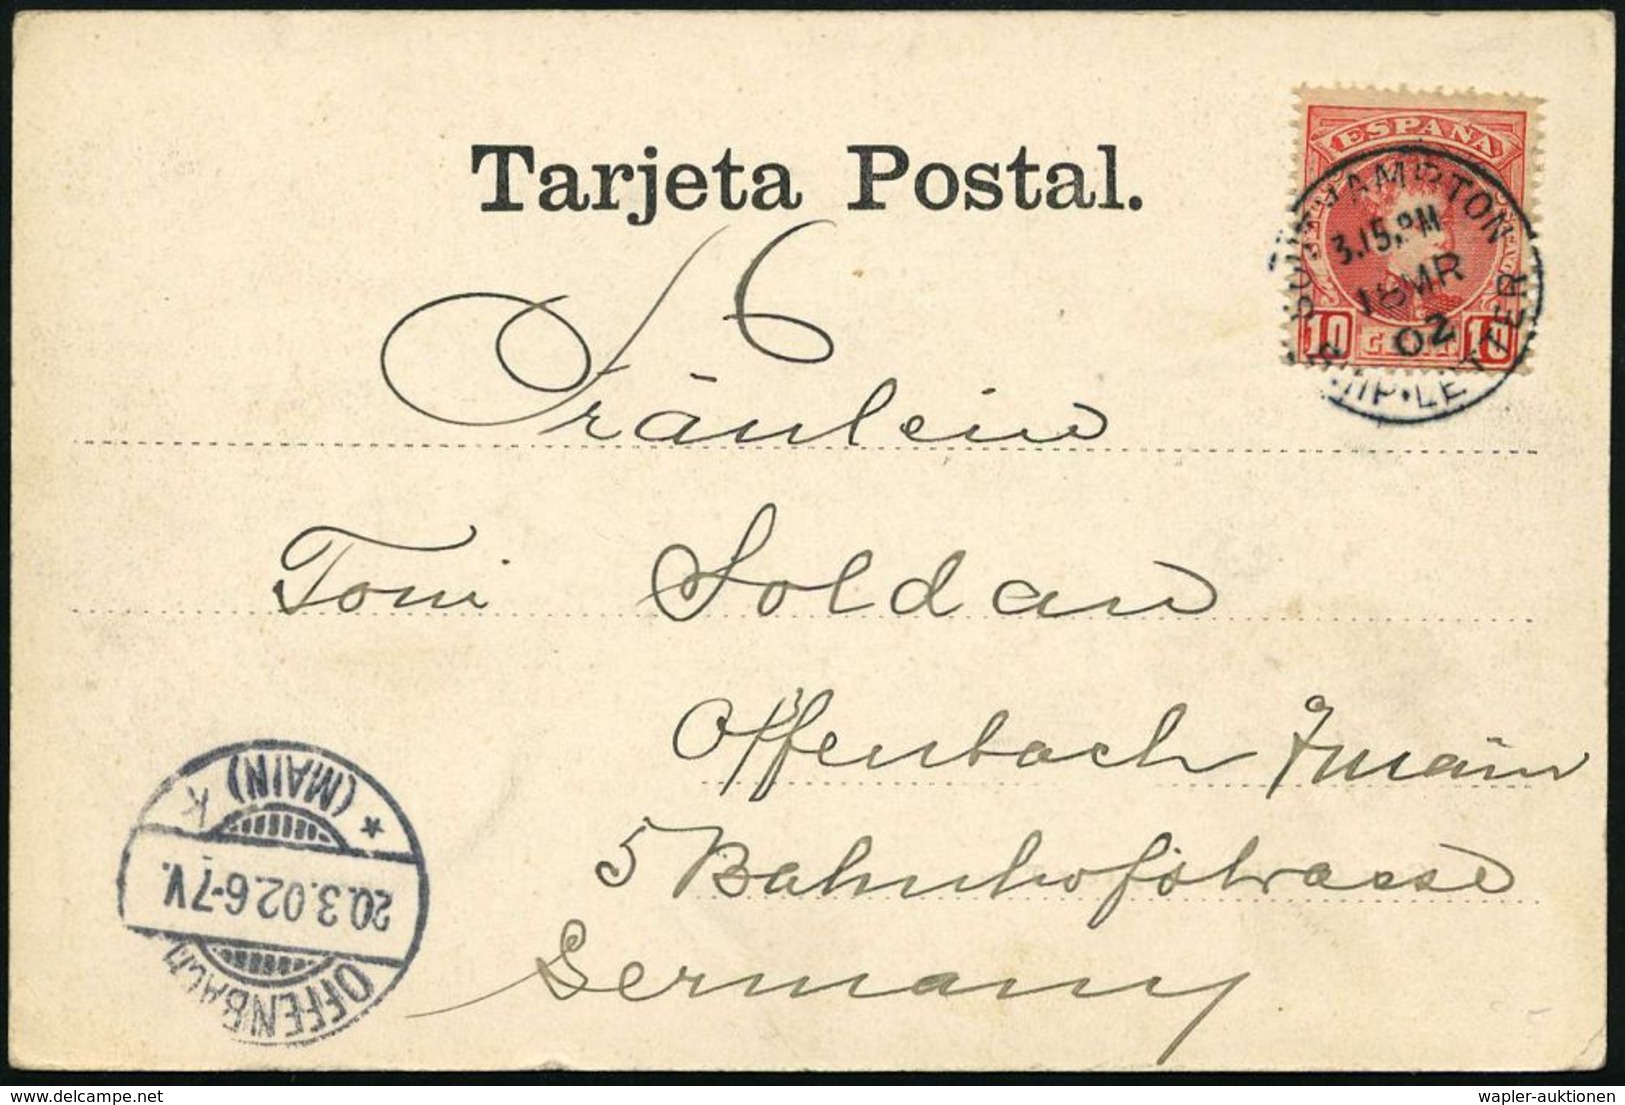 Tarjeta Postal.
ESPAÑA
SOUTHAMPTON
3.15.PM
18 MR
02
SHIP·LETTER
10 CENT. 10
Fräulein
Toni Soldan
Offenbach Main
5 Bahnhofstrasse
Germany
OFFENBACH
20.3.02.6-7V.
* (MAIN) K
www.delcampe.net
wapler-auktionen